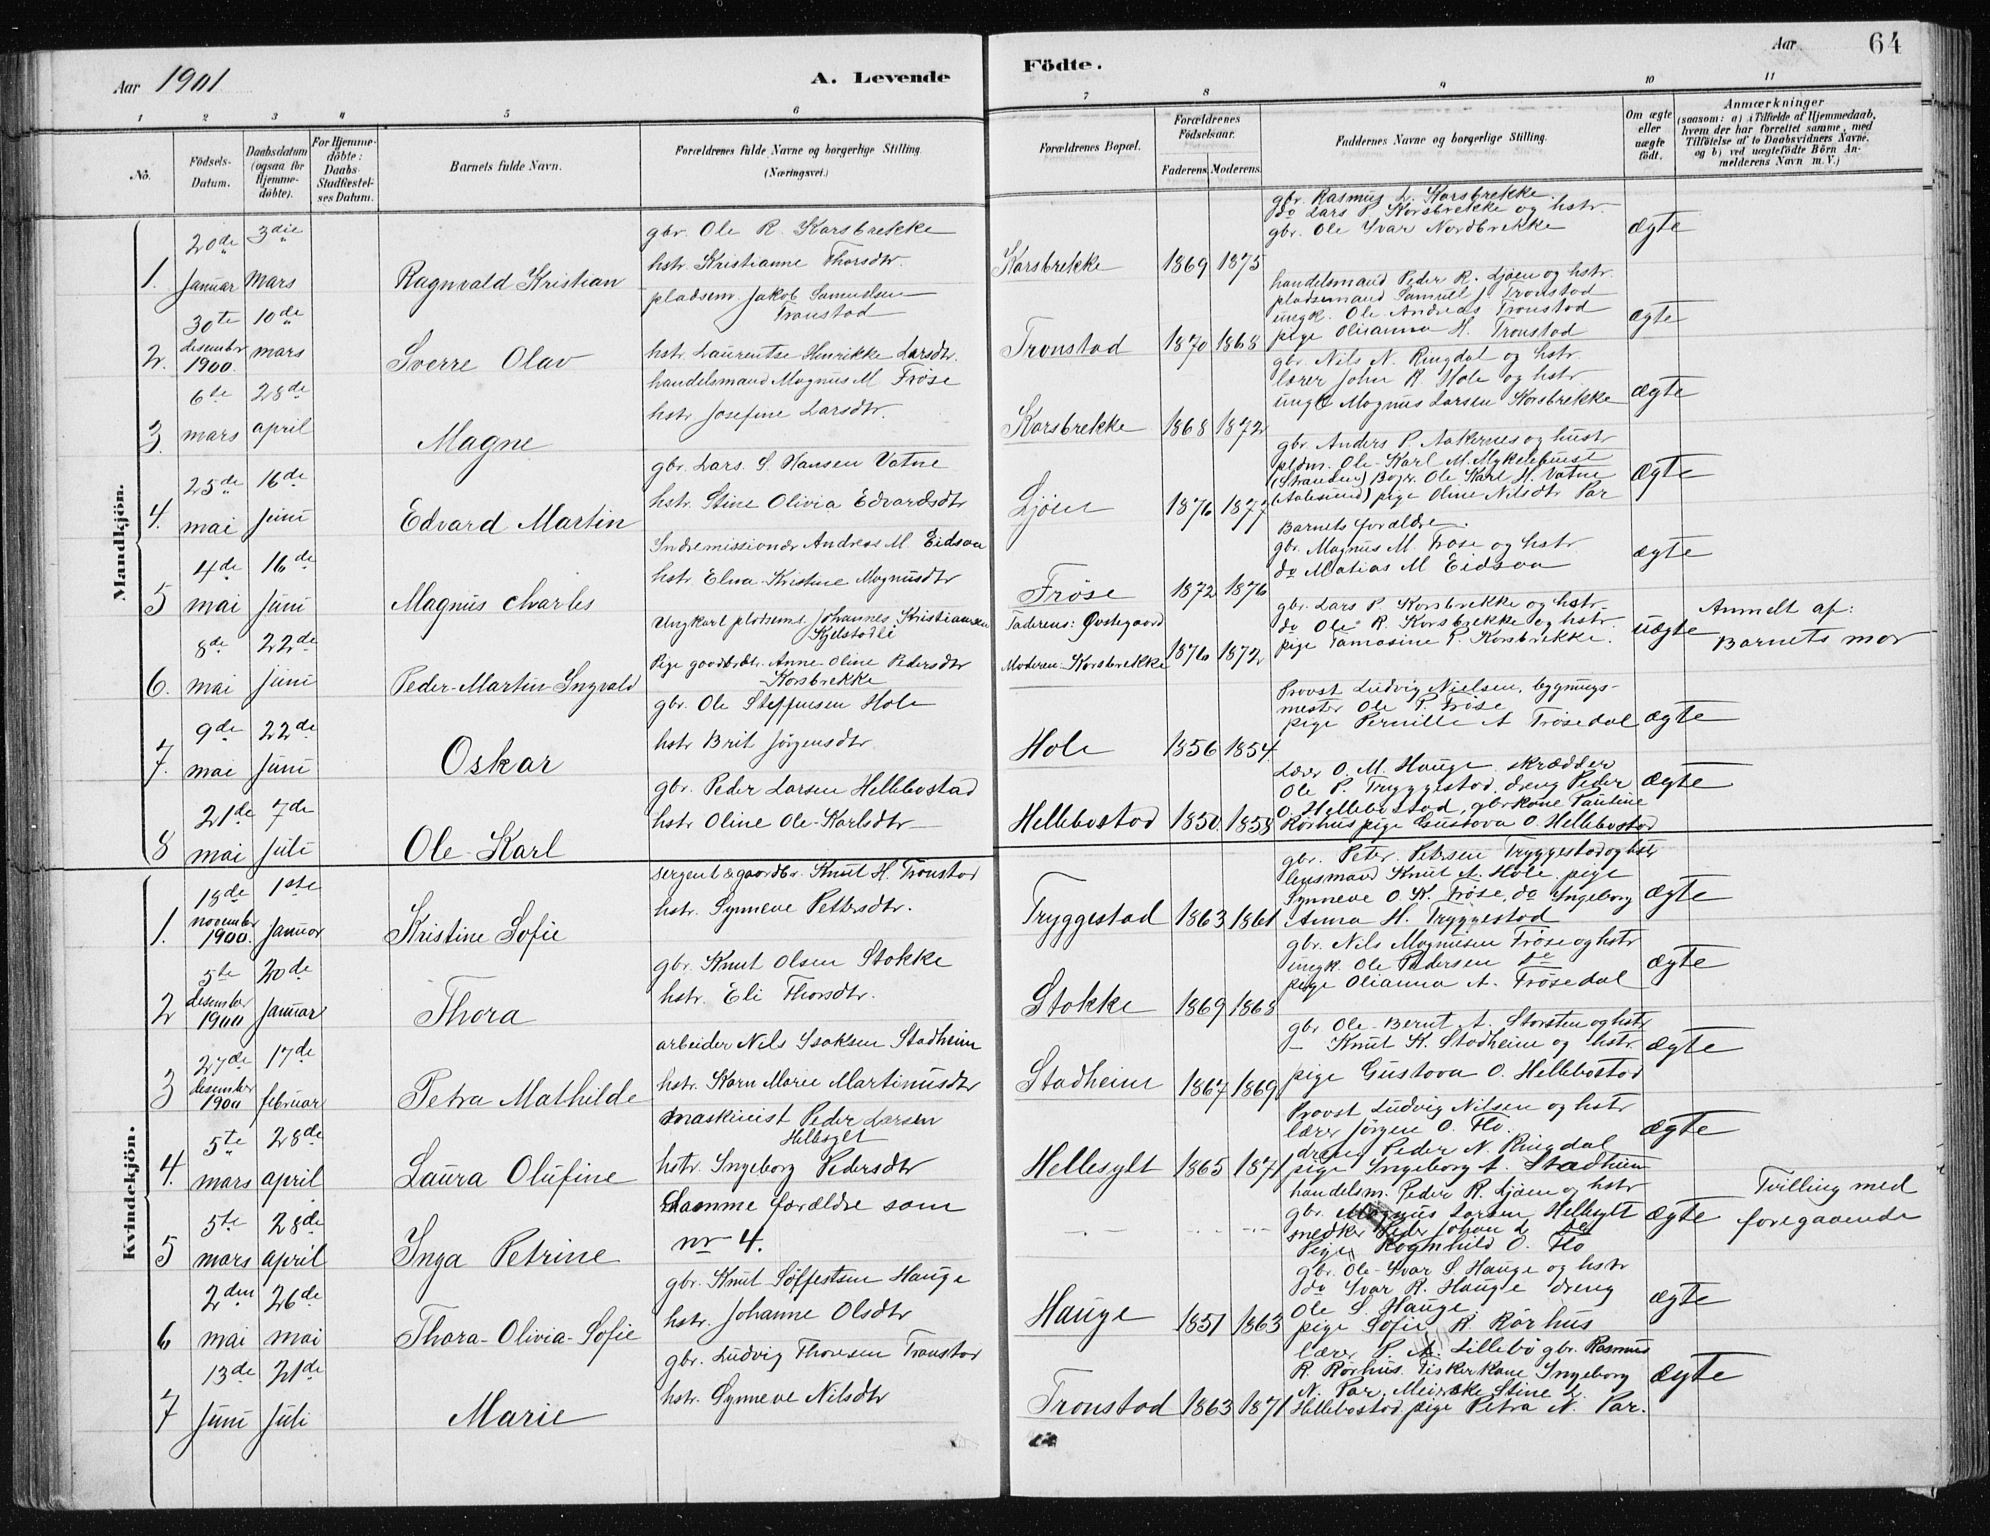 Aar 1901
A. Levende
Födte.
Aar
64
1 2 3 4 5 6 7 8 9 10 11
No.
Födsels-Datum.
Daabsdatum (ogsaa for Hjemme-döbte).
For Hjemme-döbte: Daabs-Stadfæstel-ses Datum.
Barnets fulde Navn.
Forældrenes fulde Navne og borgerlige Stilling.
(Næringsvei.)
Forældrenes Bopæl.
Forældrenes Födselsaar.
Faderens. Moderens.
Faddernes Navne og borgerlige Stilling.
Om ægte eller uægte födt.
Anmærkninger
(saasom: a) i Tilfælde af Hjemmedaab,
hvem der har forrettet samme, med
Tilföielse af to Daabsvidners Navne,
og b) ved uægtefödte Börn An-
melderens Navn m. V.)
Mandkjön.
1. 20de Januar
3die Mars
Ragnvald Kristian
gbr. Ole R. Korsbrekke
hstr. Kristianne Thorsdtr.
Korsbrekke 1869 1875
gbr. Rasmus L. Korsbrekke.
do Lars P. Korsbrekke og hstr.
gbr. Ole Ivar Nordbrekke
ægte
2. 30te desember 1900.
10de mars
Sverre Olav
pladsem. Jakob Samuelsen
Tronstad
hstr. Laurentse Henrikke Larsdtr.
Tronstad 1870 1868
handelsmand Peder R. Ljøen og hstr.
pladsemand Samuel J. Tronstad
ungk. Ole Andreas Tronstad
pige Olianna H. Tronstad
ægte
3. 6te mars
28de april
Magne
handelsmand Magnus M. Frøse
hstr Josefine Larsdtr.
Korsbrekke 1868 1872
gbr. Nils N. Ringdal og hstr
lærer John R. Hole og hstr
ungk Magnus Larsen Korsbrekke
ægte
4. 25de mai
16de Juni
Edvard Martin
gbr. Lars S. Hansen Vatne
hstr. Stine Olivia Edvardsdtr
Ljøen 1876 1877
gbr. Anders P. Aakernes og hustr
pldm. Ole-Karl M. Myklebust
(Stranden) Bojr. Ole Karl H. Vatne
(Aalesund) pige Oline Nilsdtr Par
ægte
5 4de mai
16de Juni
Magnus Charles
Indremissionær Andreas M. Eidsaa
hstr. Elna-Kristine Magnusdtr
Frøse 1872 1876
Barnets forældre.
gbr. Magnus M. Frøse og hstr
do Matias M Eidsaa
ægte
6. 8de mai
22de Juni
Peder-Martin-Ingvald
Ungkarl pladsems. Johannes Kristiansen
Kjelstadli
Pige gaardbrdtr. Anne-Oline Pedersdtr
Korsbrekke
Faderens: Øvstegaard
Moderen-Korsbrekke
1876 1872
gbr. Lars P. Korsbrekke og hstr-
do Ole R. Korsbrekke og hstr.
pige Tamasine P. Korsbrekke.
uægte
Anmelt af:
Barnets mor
7. 9de mai
22de Juni
Oskar
gbr. Ole Steffensen Hole
hstr Brit Jørgensdtr.
Hole 1856 1854
Provst Ludvig Nielsen, bygnings-
mester Ole P. Frøse
pige Pernille A Frøsedal
ægte
8 21de mai
7de Juli
Ole-Karl
gbr. Peder Larsen Hellebostad
hstr Oline Ole-Karlsdtr
Hellebostad 1850 1858
Lærer O. M. Hauge, skrædder
Ole P. Tryggestad, dreng Peder
O. Hellebostad, gbrkone Pauline
Rørhus pige Gustava O. Hellebostad
ægte
Kvindekjön.
1. 18de november 1900.
1ste Januar
Kristine Sofie
sergent og gaardbr. Knut H. Tronstad
hstr. Synneve Pettersdtr.
Tryggestad 1863 1861
gbr. Peter Petersen Tryggestad og hstr
lensmand Knut A. Hole. pige
Synneve O K. Frøse, do Ingeborg
Anna H. Tryggestad
ægte
2 5te desember 1900
20de Januar
Thora
gbr. Knut Olsen Stokke
hstr. Eli Thorsdtr.
Stokke 1869 1868
gbr. Nils Magnusen Frøse og hstr
ungk. Ole Pedersen do
pige Olianna A. Frøsedal
ægte
3 27de desember 1900
17de februar
Petra Mathilde
arbeider Nils Isaksen Stadheim
hstr. Karn Marie Martinusdtr
Stadheim 1867 1869
gbr Ole-Bernt A. Storsten og hstr
– Knut K. Stadheim og hstr.
pige Gustava O. Hellebostad
ægte
4. 5te mars
28de april
Laura Olufine
maskinist Peder Larsen
Hellesylt
hstr. Ingeborg Pedersdtr
Hellesylt 1865 1871
Provst Ludvig Nilsen og hstr
lærer Jørgen O. Flo.
dreng Peder N. Ringdal
pige Ingeborg A. Stadheim
ægte
5 5te mars
28de april
Inga Petrine
Samme forældre som
nr 4.
handelsm. Peder R. Ljøen og hstr
gbr. Magnus Larsen Hellesylt
snedker Peder Johan L do
Pige Ragnhild O. Flo
ægte
Tvilling med
foregaaende
6 2den mai
26de mai
Thora-Olivia-Sofie
gbr. Knut Søffestsen Hauge
hstr. Johanne Olsdtr
Hauge 1851 1863
gbr. Ole-Ivar S. Hauge og hstr
do Ivar R. Hauge dreng
Ole S. Hauge
pige Sofie R. Rørhus
ægte
7 13de Juni
21de Juli
Marie
gbr. Ludvig Thoresen Tronstad
hstr. Synneve Nilsdtr
Tronstad 1863 1871
lærer P. A. Lillebø gbr. Rasmus
R. Rørhus. Fiskerkone Ingeborg
N. Par, Meierske Stine L.
Hellebostad, pige Petra N. Par.
ægte